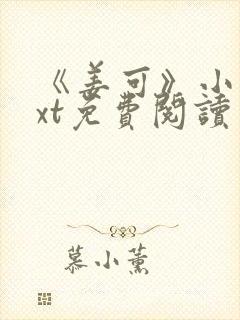 《姜可》小
xt免費閱讀
慕小薰